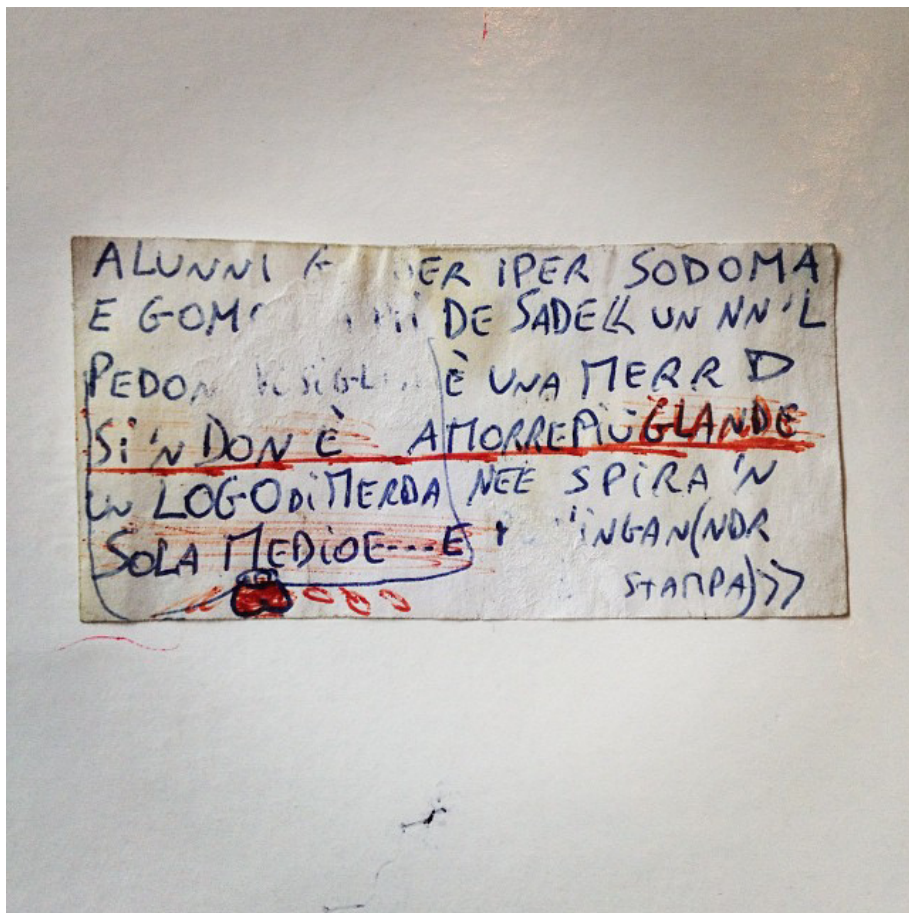 ALUNNI ER IPER SODOMA
E GOMO DE SADE<< UN NN'L
PEDON È UNA MERR D
SI 'N DON È AMORREPIÙGLANDE
UN LOGO DI MERDA NEE SPIRA 'N
SOLA MEDIOE---E 'INGAN(NDR
STAMPA)>>